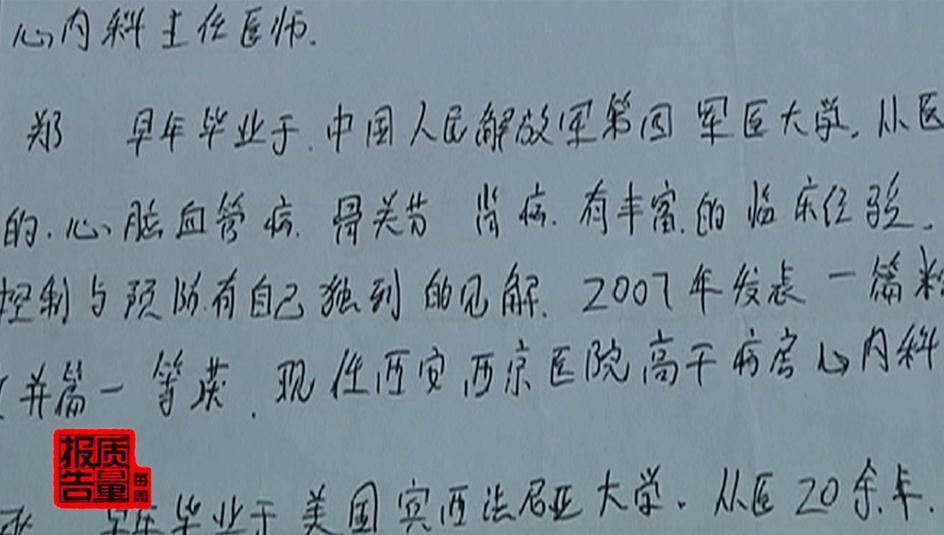 心内科主任医师.
郑 早年毕业于.中国人民解放军第四军医大学.从医
的.心、脑血管病.骨关节 肾病.有丰富的临床经验.
控制与预防有自己独到的见解.2007年发表一篇
并篇一等奖.现任西安西京医院高干病房心内科
早年毕业于美国宾西法尼亚大学.从医20余年.
每周质量报告